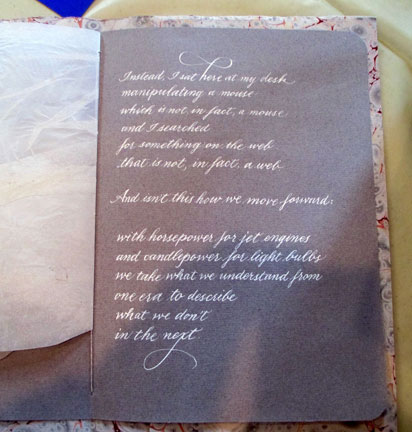 Instead, I sat here at my desk
manipulating a mouse
which is not in fact, a mouse
and I searched
for something on the web
that is not, in fact, a web
And isn't this how we move forward:
with horsepower for jet engines
and candlepower for light bulbs
we take what we understand from
one era to describe
what we don't
in the next